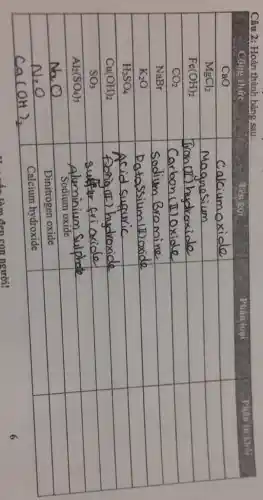 Câu 2: Hoàn thành bảng sau
Công thức Tên gọi Phân loại Phân tử khối
CaO Calcium oxide
MgCl2 Magnesium
Fe(OH)2 Iron (II) hydroxide
CO2 Carbon (II) oxide
NaBr Sodium Bromine
K2O Potassium (I) oxide
H2SO4 Acid sufuric
Cu(OH)2 Đồng (II) hydroxide
SO3 Sulfur trioxide
Al2(SO4)3 Aluminium Sulphate
Na2O Sodium oxide
N2O Dinitrogen oxide
Ca(OH)2 Calcium hydroxide
làm đẹp con người!
6